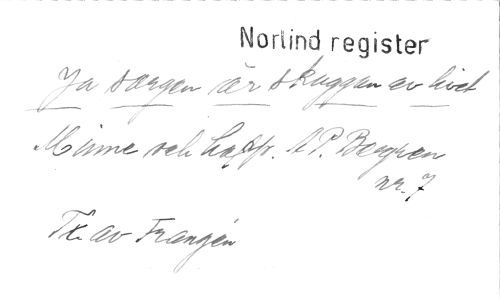 Norlind register
Ja sorgen är skuggan av livet
Minne och hopp. A P. Berggren
nr. 7
Tx. av Frangén